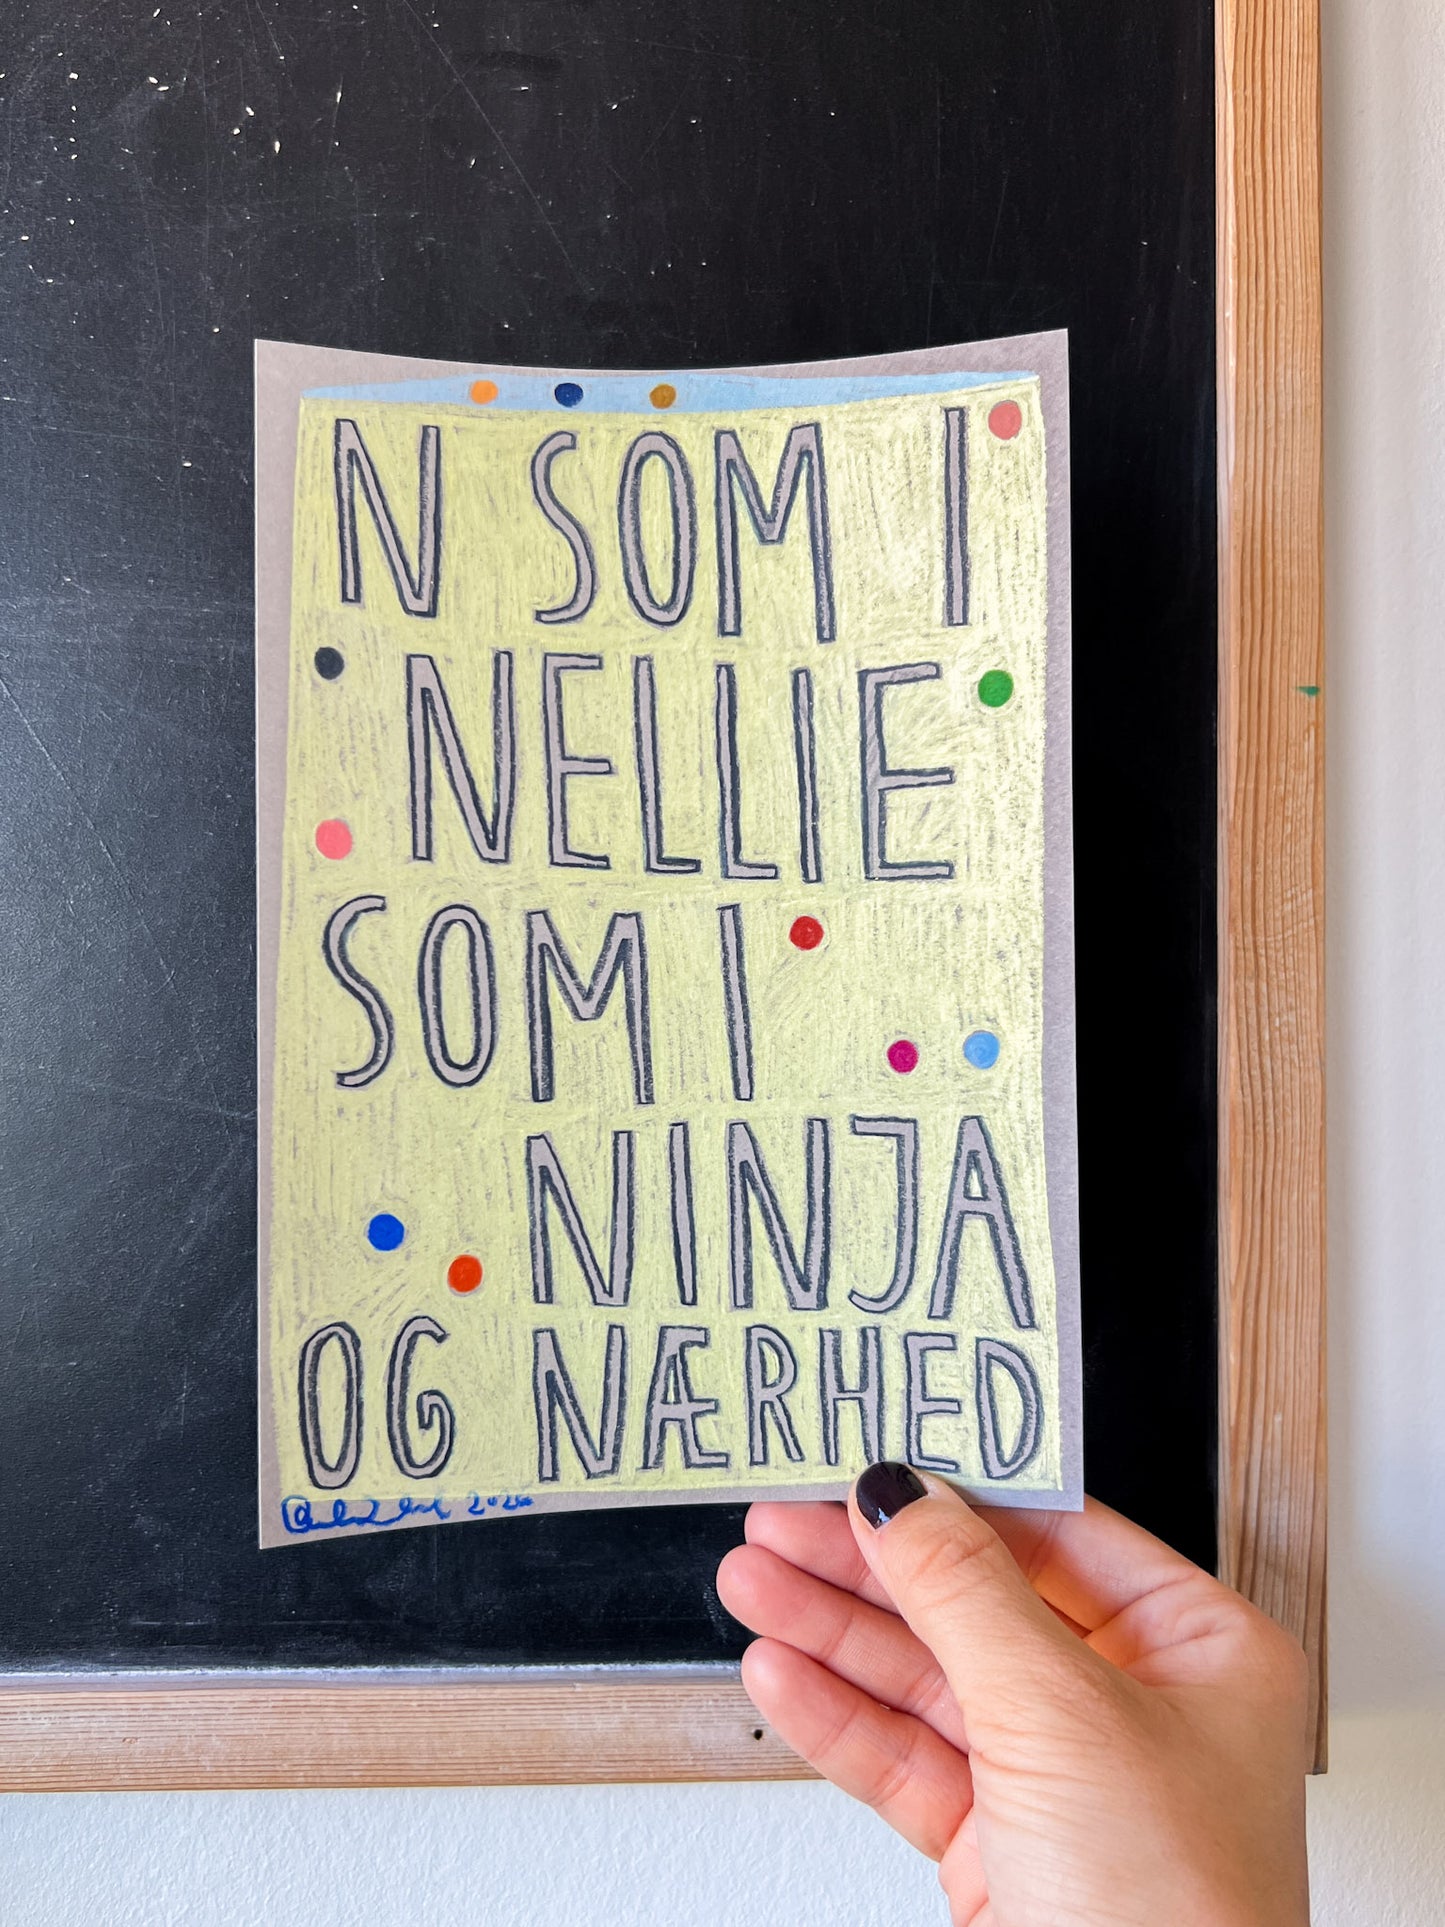 N SOM I
NELLIE
SOM I
NINJA
OG NÆRHED